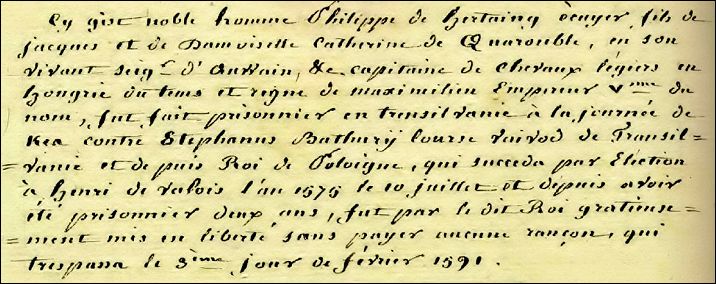 Cy gist noble homme Philippe de hertaing écuyer, fils de
jacques et de Damoiselle Catherine de Quarouble, en son
vivant seigr. d'Auwain, &c. capitaine de Chevaux légiers en
hongrie du tems et règne de maximilien Empireur Vme du
nom, fut fait prisonnier en transilvanie à la journée de
Kea contre Stephanus Bathurij lourse vaivod de Transil-
=vanie et depuis Roi de Poloigne, qui succeda par Eliction
à henri de valois l'an 1575 le 10 juillet et depuis avoir
été prisonnier deux ans, fut par le dit Roi gratieuse=
=ment mis en liberté sans payer aucune rançon, qui
trespassa le 3ème jour de février 1591.